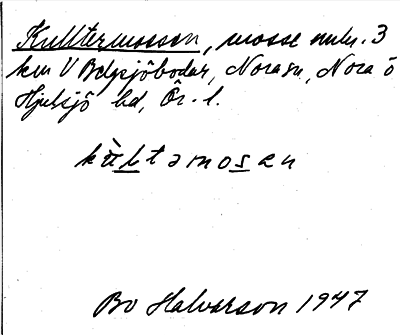 Kulltermossen, mosse m
km V Belgsjöbodar, Norasn, Nora o
Hjulsjö bd, Ör. l.
kùltəmosən
Bo Halvarson 1947